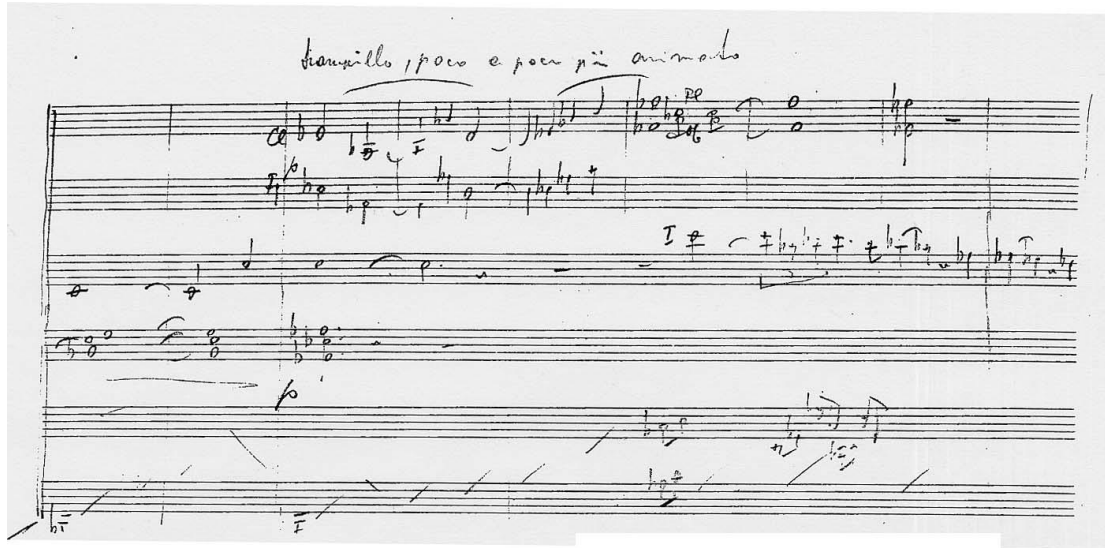 tranquillo, poco a poco più animato
Cl
p
I
p